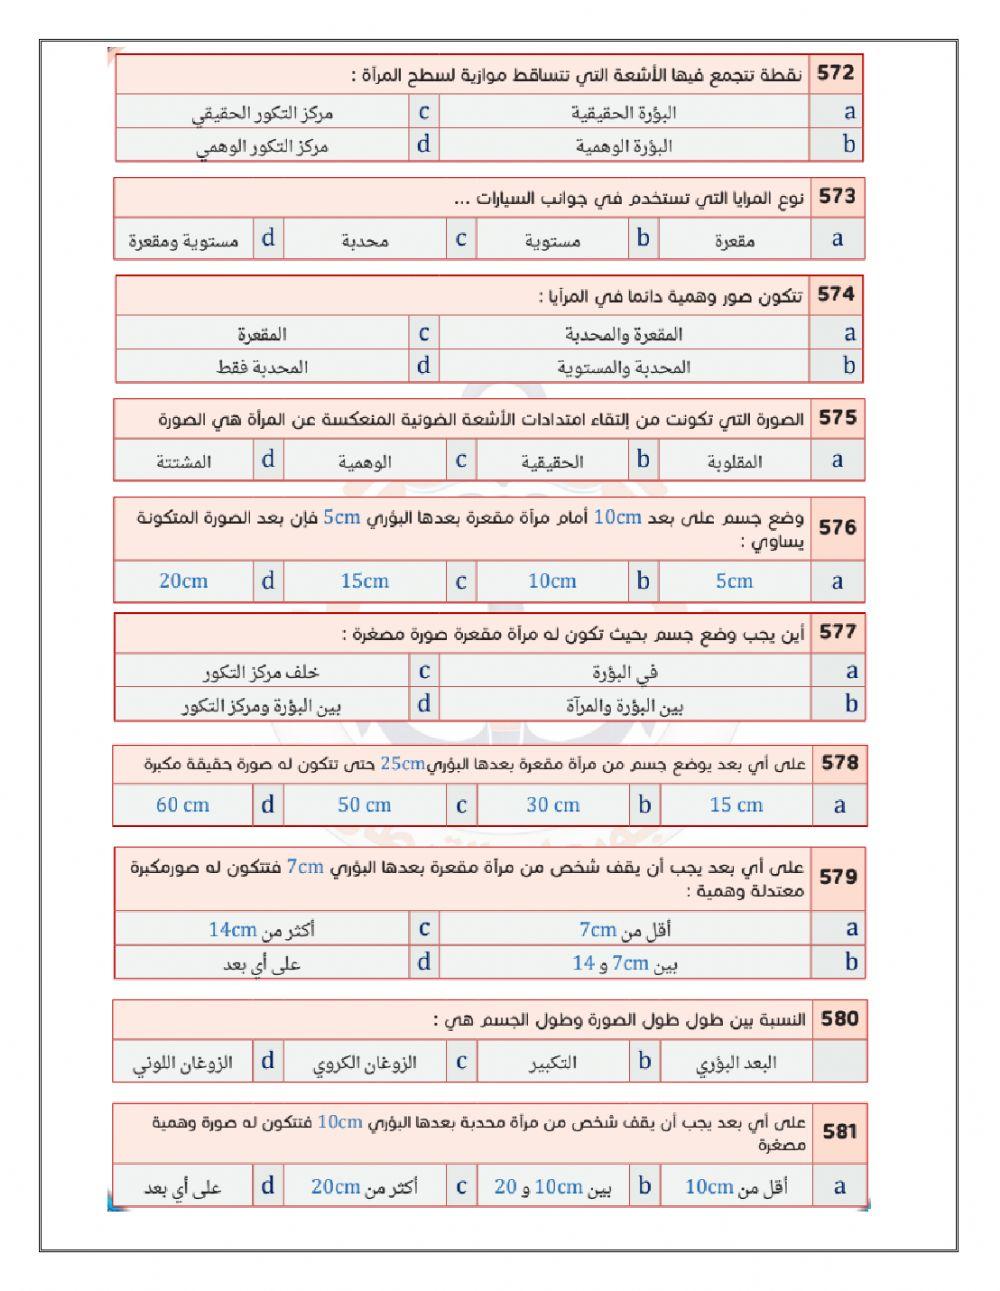 572 نقطة تتجمع فيها الأشعة التي تتساقط موازية لسطح المرآة :
a البؤرة الحقيقية c مركز التكور الحقيقي
b البؤرة الوهمية d مركز التكور الوهمي
573 نوع المرايا التي تستخدم في جوانب السيارات ...
a مقعرة b مستوية c محدبة d مستوية ومقعرة
574 تتكون صور وهمية دائما في المرآيا :
a المقعرة والمحدبة c المقعرة
b المحدبة والمستوية d المحدبة فقط
575 الصورة التي تكونت من إلتقاء امتدادات الأشعة الضوئية المنعكسة عن المرأة هي الصورة
a المقلوبة b الحقيقية c الوهمية d المشتتة
576 وضع جسم على بعد 10cm أمام مرآة مقعرة بعدها البؤري 5cm فإن بعد الصورة المتكونة
يساوي :
a 5cm b 10cm c 15cm d 20cm
577 أين يجب وضع جسم بحيث تكون له مرآة مقعرة صورة مصغرة :
a في البؤرة c خلف مركز التكور
b بين البؤرة والمرآة d بين البؤرة ومركز التكور
578 على أي بعد يوضع جسم من مرآة مقعرة بعدها البؤري25cm حتى تتكون له صورة حقيقة مكبرة
a 15 cm b 30 cm c 50 cm d 60 cm
579 على أي بعد يجب أن يقف شخص من مرآة مقعرة بعدها البؤري 7cm فتتكون له صورمكبرة
معتدلة وهمية :
a أقل من 7cm c أكثر من 14cm
b بين 7cm و 14 d على أي بعد
580 النسبة بين طول طول الصورة وطول الجسم هي :
البعد البؤري b التكبير c الزوغان الكروي d الزوغان اللوني
581 على أي بعد يجب أن يقف شخص من مرآة محدبة بعدها البؤري 10cm فتتكون له صورة وهمية
مصغرة
a أقل من 10cm b بين 10cm و 20 c أكثر من 20cm d على أي بعد